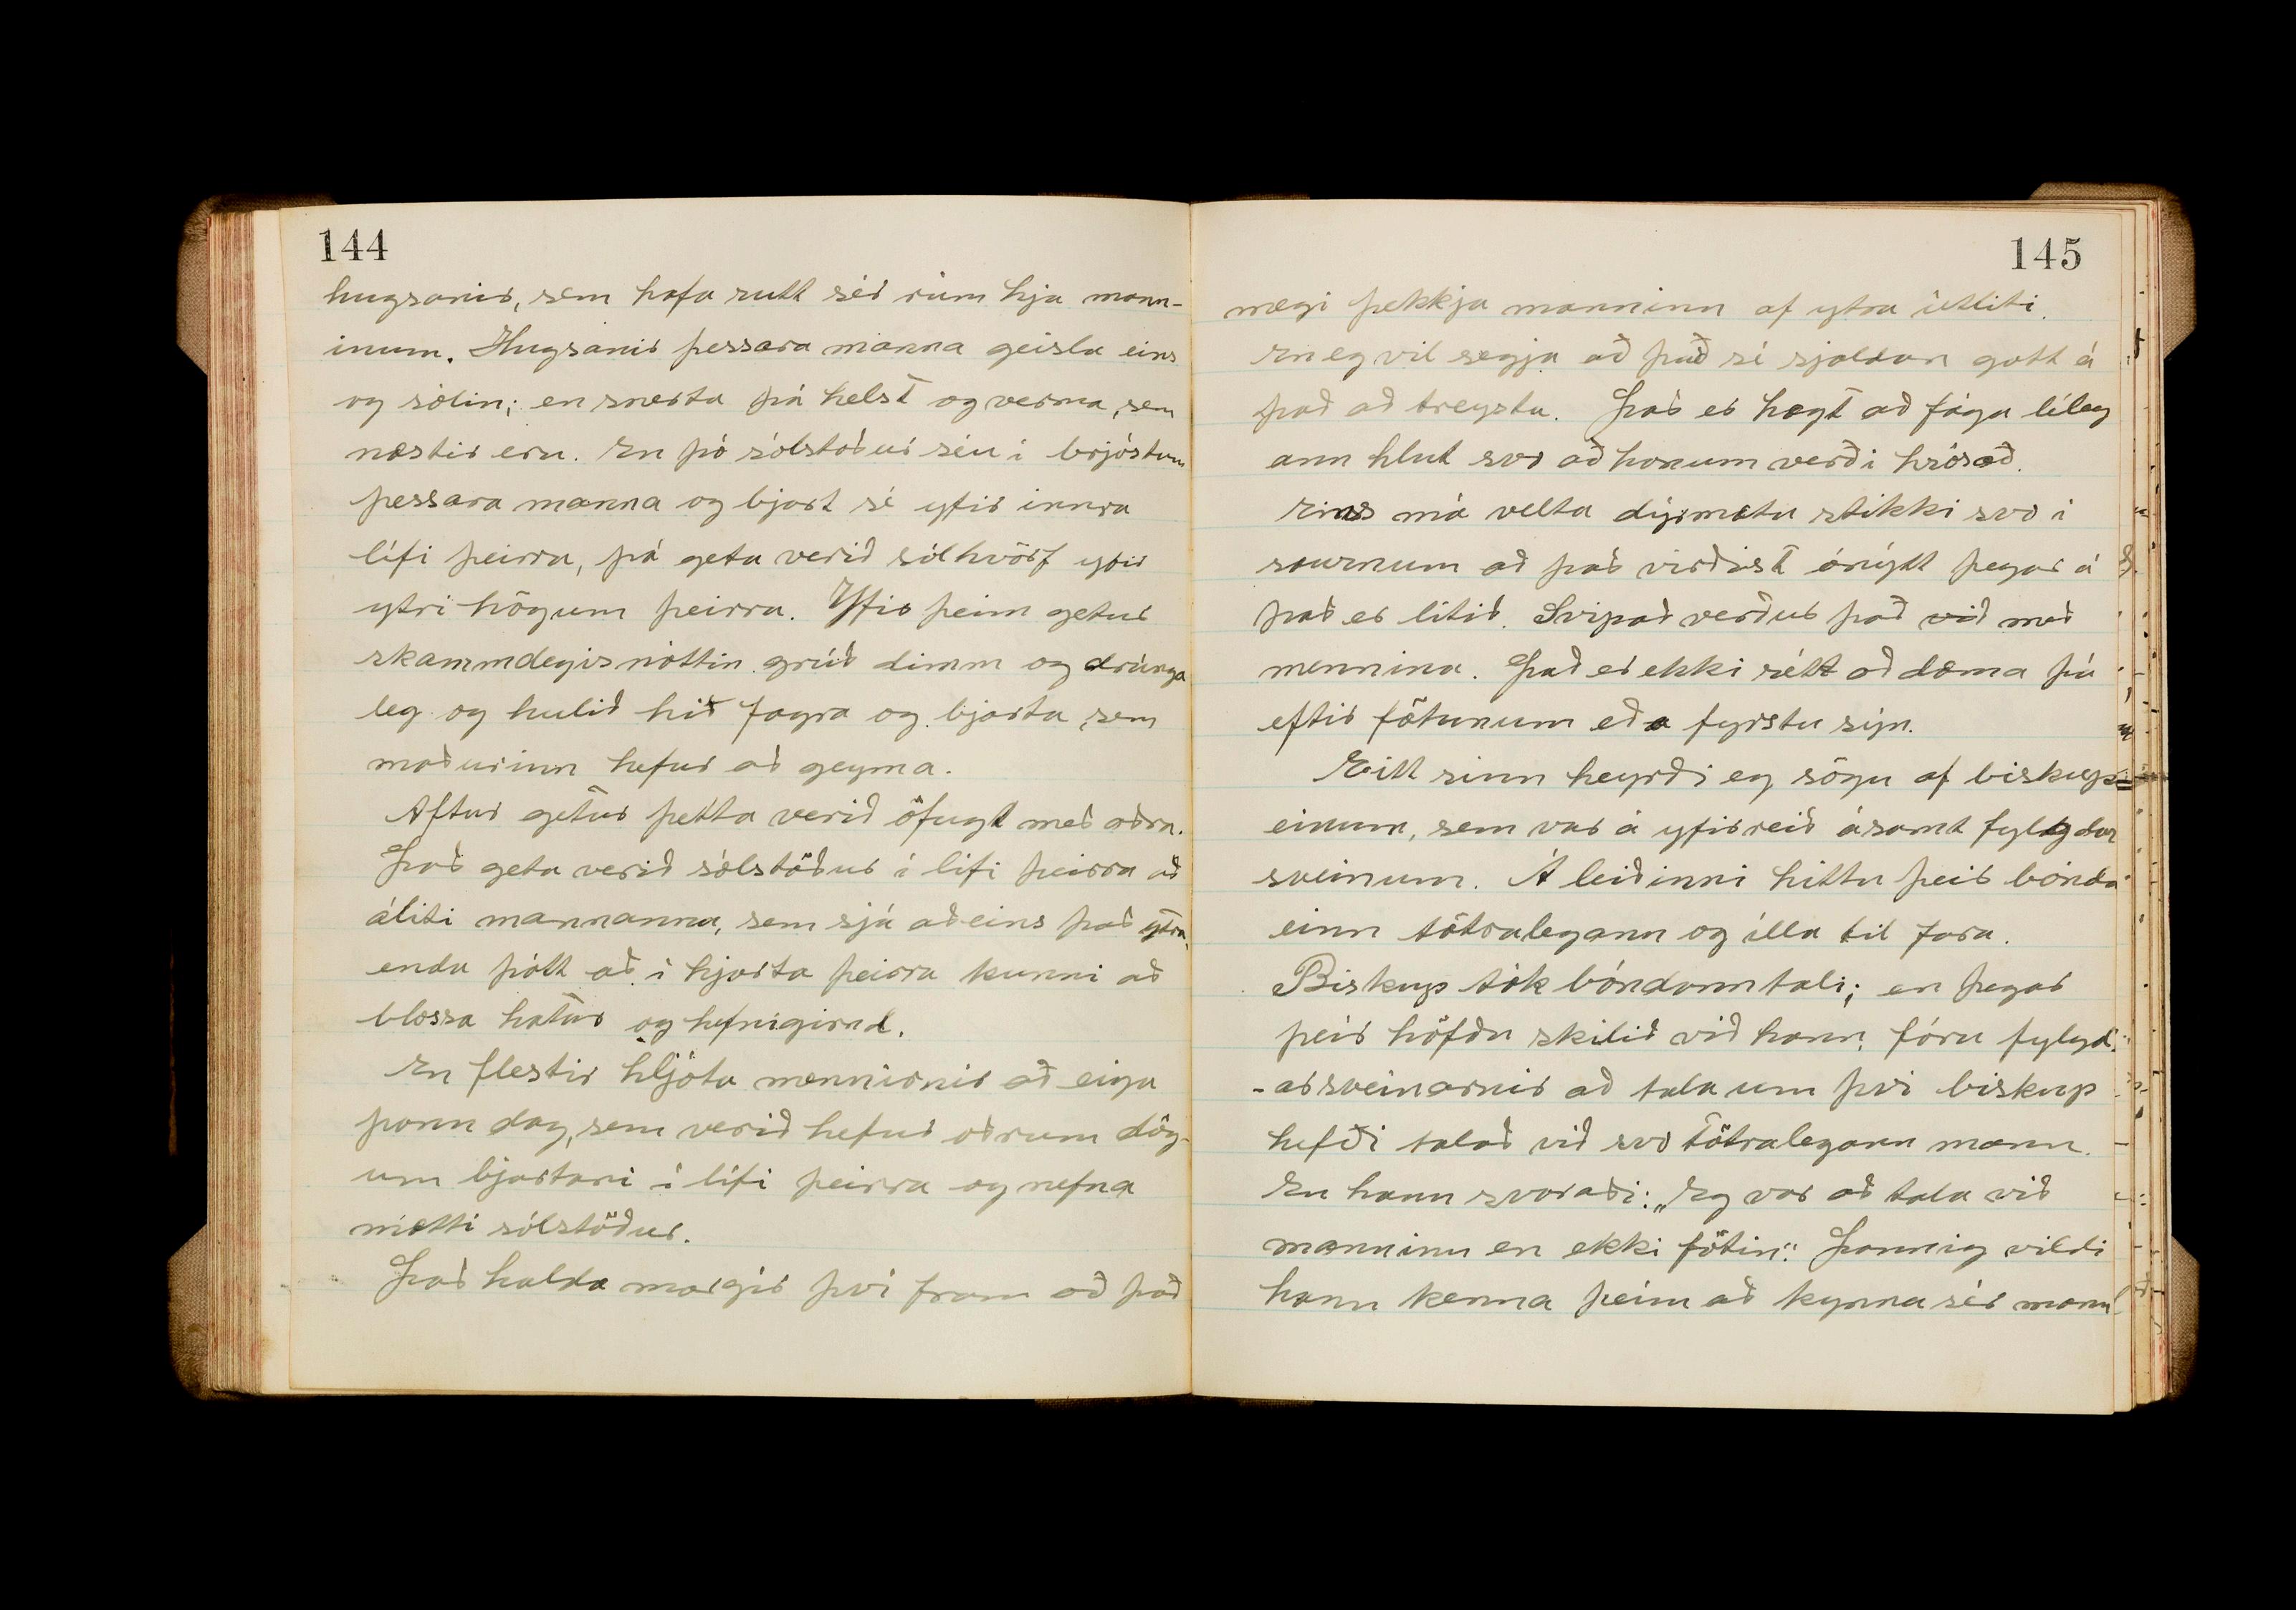 144
hugsanir, sem hafa rutt sér rúm hja mann-
inum. Hugsanir þessara manna geisla eins
og sólin; en snerta þá helst og verma, sem
næstir eru. En þó sólstöður séu í brjóstum
þessara manna og bjart sé yfir innra
lífi þeirra, þá geta verið sólhvörf yfir
ytri högum þeirra. Yfir þeim getur
skammdegisnóttin grúð dimm og drúnga
leg og hulið hið fagra og bjarta, sem
maðurinn hefur að geyma.
Aftur getur þetta verið öfugt með aðra.
Það geta verið sólstöður í lífi þeirra að
áliti mannanna, sem sjá aðeins það ytra,
enda þótt að í hjarta þeirra kunni að
blossa hatur og hefnigirnd.
En flestir hljóta mennirnir að eiga
þann dag, sem verið hefur öðrum dög-
um bjartari í lífi þeirra og nefna
mætti sólstöður.
Það halda margir því fram að það
145
megi þekkja manninn af ytra útliti.
En eg vil segja að það sé sjaldan gott á
það að treysta. Það er hægt að fága léleg
ann hlut svo að honum verði hrósað.
Eins má velta dýrmætu stikki svo í
saurnum að það virðist ónýtt þegar á
það er litið. Svipað verður það við með
mennina. Það er ekki rétt að dæma þá
eftir fötunum eða fyrstu sýn.
Eitt sinn heyrði eg sögu af biskup=
einum, sem var á yfirreið ásamt fylgdar
sveinum. Á leiðinni hittu þeir bónda
einn tötralegann og ílla til fara.
Biskup tók bóndann tali; en þegar
þeir höfðu skilið við hann, fóru fylgd-
-arsveinarnir að tala um því biskup
hefði talað við svo tötralegann mann.
En hann svaraði: „Eg var að tala við
manninn en ekki fötin". Þannig vildi
hann kenna þeim að kynna sér mann